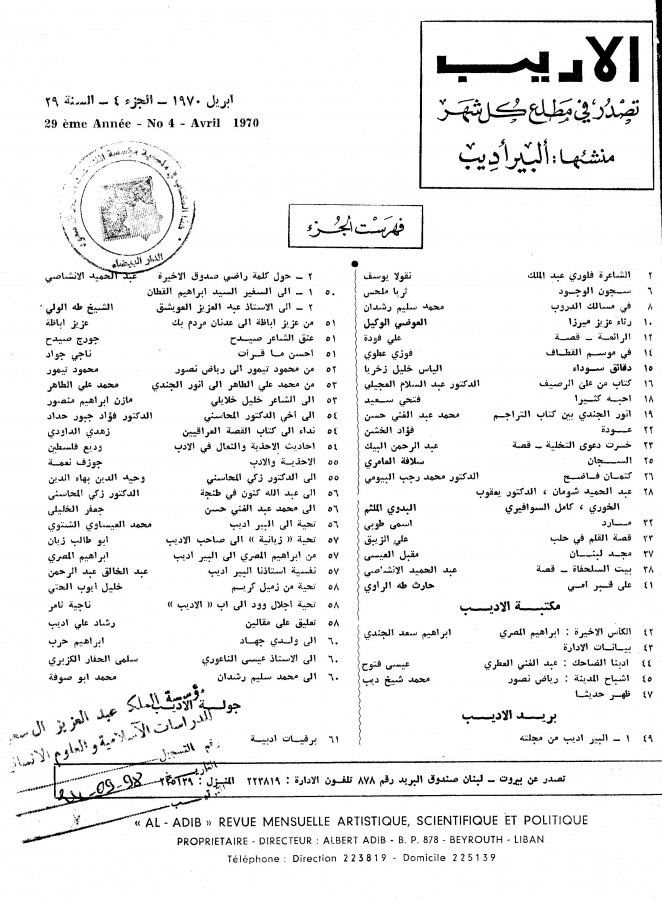 الاديب
تصدر في مطلع كل شهر
منشئها: ألبير أديب
ابريل ١٩٧٠ – الجزء ٤ – السنة ٢٩
29 ème Année - No 4 - Avril 1970
الدار البيضاء
فهرست الجزء
٢ الشاعرة فلوري عبد الملك نقولا يوسف
٦ سجون الوجود ثريا ملحس
٨ في مسالك الدروب محمد سليم رشدان
١٠ رثاء عزيز ميرزا العوضي الوكيل
١٢ الرائعة – قصة علي فودة
١٤ في موسم القطاف فوزي عطوي
١٥ دقائق سوداء الياس خليل زخريا
١٦ كتاب من على الرصيف الدكتور عبد السلام العجيلي
١٨ احبه كثيرا فتحي سعيد
١٩ انور الجندي بين كتاب التراجم محمد عبد الغني حسن
٢٢ عودة فؤاد الخشن
٢٣ خسرت دعوى التخلية – قصة عبد الرحمن البيك
٢٥ السجان سلافة العامري
٢٦ كتمان فاضح الدكتور محمد رجب البيومي
٢٨ عبد الحميد شومان ، الدكتور يعقوب
الخوري ، كامل السوافيري البدوي الملثم
٣٢ مارد اسمى طوبي
٣٣ قصة القلم في حلب علي الزيبق
٣٧ مجد لبنان مقبل العيسى
٣٨ بيت السلحفاة – قصة عبد الحميد الانشاصي
٤١ على قبر امي حارث طه الراوي
مكتبة الاديب
٤٢ الكأس الاخيرة : ابراهيم المصري ابراهيم سعد الجندي
٤٣ بيانات الادارة
٤٤ ادبنا الضاحك : عبد الغني العطري عيسى فتوح
٤٥ اشباح المدينة : رياض نصور محمد شيخ ديب
٤٧ ظهر حديثا
بريد الاديب
٤٩ ١ – البير اديب من مجلته
٢ – حول كلمة راضي صدوق الاخيرة عبد الحميد الانشاصي
٥٠ ١ – الى السفير السيد ابراهيم القطان
٢ – الى الاستاذ عبد العزيز العويشق الشيخ طه الولي
٥١ من عزيز اباظة الى عدنان مردم بك عزيز اباظة
٥١ عنق الشاعر صيدح جورج صيدح
٥١ احسن ما قرأت ناجي جواد
٥٢ من محمود تيمور الى رياض نصور محمود تيمور
٥٣ من محمد علي الطاهر الى انور الجندي محمد علي الطاهر
٥٣ الى الشاعر خليل خلايلي مازن ابراهيم منصور
٥٤ الى أخي الدكتور المحاسني الدكتور فؤاد جبور حداد
٥٤ نداء الى كتاب القصة العراقيين زهدي الداودي
٥٤ احاديث الاحذية والنعال في الادب وديع فلسطين
٥٥ الاحذية والادب جوزف نعمة
٥٥ الى الدكتور زكي المحاسني وحيد الدين بهاء الدين
٥٦ الى عبد الله كنون في طنجة الدكتور زكي المحاسني
٥٦ الى محمد عبد الغني حسن جعفر الخليلي
٥٦ تحية الى البير اديب محمد العيساوي الشتوي
٥٧ تحية « زيانية » الى صاحب الاديب ابو طالب زيان
٥٧ من ابراهيم المصري الى البير اديب ابراهيم المصري
٥٧ نفسية استاذنا البير اديب عبد الخالق عبد الرحمن
٥٨ تحية من زميل كريم خليل ايوب الحتي
٥٨ تحية اجلال وود الى اب « الاديب » ناجية ثامر
٥٨ تعليق على مقالين رشاد علي اديب
٦٠ الى ولدي جهاد ابراهيم حرب
٦٠ الى الاستاذ عيسى الناعوري سلمى الحفار الكزبري
٦٠ الى محمد سليم رشدان محمد ابو صوفة
جولة الاديب
٦١ برقيات ادبية
مؤسسة الملك عبد العزيز ال سعود
للدراسات الاسلامية و العلوم الانسانية
رقم التسجيل
التاريخ
تصدر عن بيروت – لبنان صندوق البريد رقم ٨٧٨ تلفون الادارة : ٢٢٣٨١٩ المنزل : ٢٢٥١٣٩
« AL - ADIB » REVUE MENSUELLE ARTISTIQUE, SCIENTIFIQUE ET POLITIQUE
PROPRIETAIRE - DIRECTEUR : ALBERT ADIB - B. P. 878 - BEYROUTH - LIBAN
Téléphone : Direction 223819 - Domicile 225139